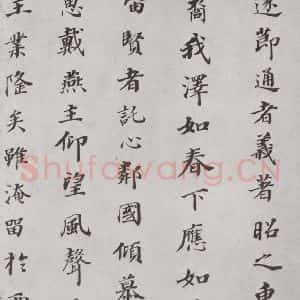 遂節通者義著昭之東
裔我澤如春下應如
宙賢者託心鄰國傾慕
思戴燕主仰望風聲
王業隆矣雖淹留於兩
Shufawang.CN